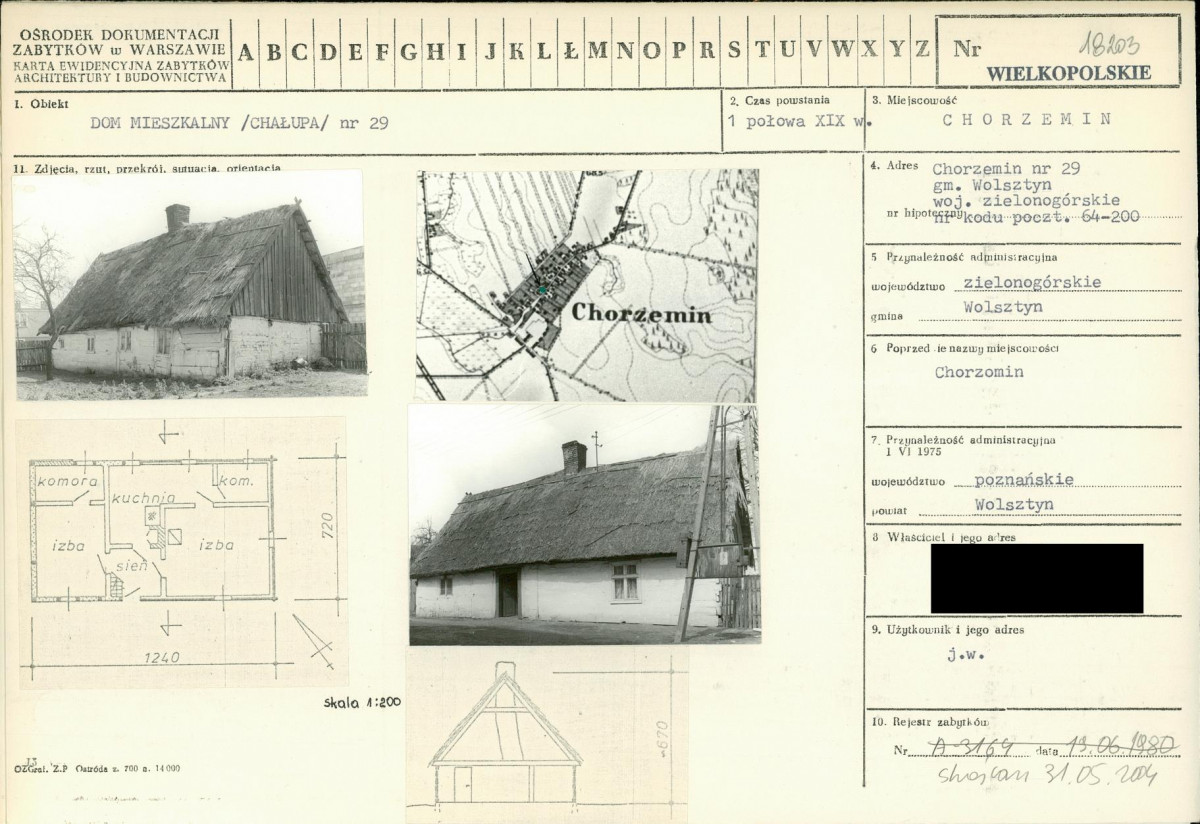 OŚRODEK DOKUMENTACJI
ZABYTKÓW w WARSZAWIE
KARTA EWIDENCYJNA ZABYTKÓW
ARCHITEKTURY I BUDOWNICTWA
A B C D E F G H I J K L Ł M N O P R S T U V W X Y Z
Nr 18203
WIELKOPOLSKIE
1. Obiekt
DOM MIESZKALNY /CHAŁUPA/ nr 29
2. Czas powstania
1 połowa XIX w.
3. Miejscowość
CHORZEMIN
11. Zdjęcia, rzut, przekrój, sytuacja, orientacja
Chorzemin
komora
kuchnia
kom.
izba
izba
sień
720
1240
skala 1:200
670
OZGraf. Z.P Ostróda z. 700 n. 14000
4. Adres Chorzemin nr 29
gm. Wolsztyn
woj. zielonogórskie
nr hipoteczny
nr kodu poczt. 64-200
5 Przynależność administracyjna
województwo zielonogórskie
gmina Wolsztyn
6 Poprzednie nazwy miejscowości
Chorzomin
7. Przynależność administracyjna
1 VI 1975
województwo poznańskie
powiat Wolsztyn
8 Właściciel i jego adres
9. Użytkownik i jego adres
j.w.
10. Rejestr zabytków
Nr A-3164 data 19.06.1980
31.05.2004